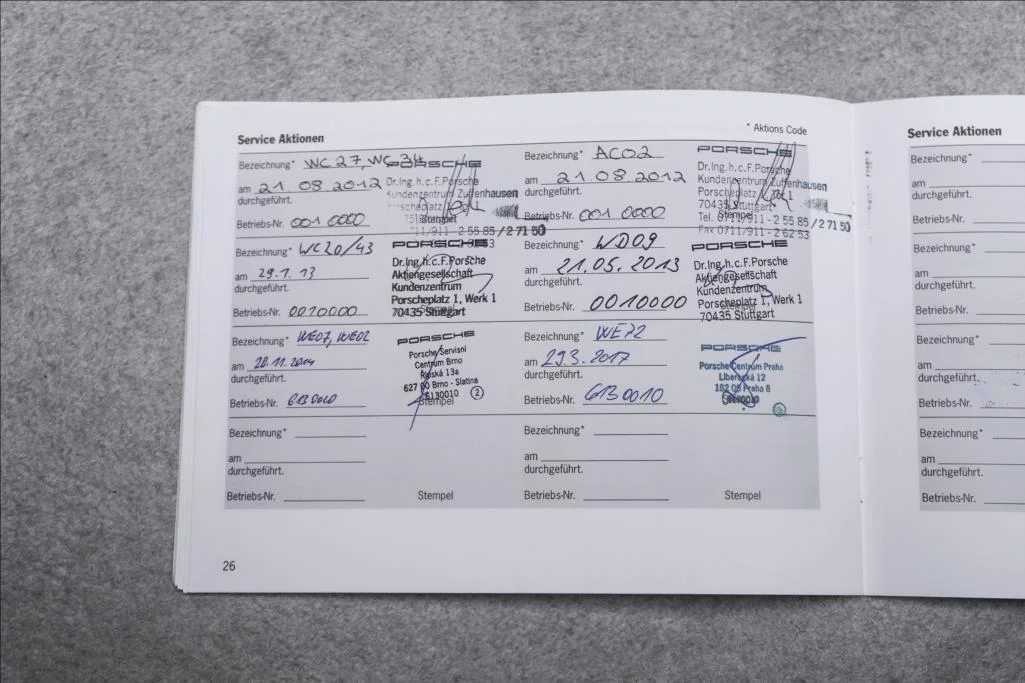 Service Aktionen
* Aktions Code
Bezeichnung* WC 27, WC 34
am 21. 08. 2012
durchgeführt.
Betriebs-Nr. 001 0000
PORSCHE
Dr. Ing. h. c. F. Porsche
Kundenzentrum Zuffenhausen
Stempel
0711/911 - 2 55 85 / 2 71 50
Bezeichnung* AC02
am 21. 08. 2012
durchgeführt.
Betriebs-Nr. 001 0000
PORSCHE
Dr. Ing. h. c. F. Porsche
Kundenzentrum Zuffenhausen
Porscheplatz
70435 Stuttgart
Stempel
Tel. 0711/911 - 2 55 85 / 2 71 50
Fax 0711/911 - 2 62 53
Bezeichnung* WC20/43
am 29.1. 13
durchgeführt.
Betriebs-Nr. 0010000
PORSCHE
Dr. Ing. h. c. F. Porsche
Aktiengesellschaft
Kundenzentrum
Porscheplatz 1, Werk 1
70435 Stuttgart
Bezeichnung* WD09
am 21. 05. 2013
durchgeführt.
Betriebs-Nr. 0010000
PORSCHE
Dr. Ing. h. c. F. Porsche
Aktiengesellschaft
Kundenzentrum
Porscheplatz 1, Werk 1
Stempel
70435 Stuttgart
Bezeichnung* WE07, WE02
am 20. 11. 2014
durchgeführt.
Betriebs-Nr.
PORSCHE
Porsche Servisní
Centrum Brno
Řipská 13a
627 00 Brno - Slatina
6130010 2
Stempel
Bezeichnung* WE72
am 29.3. 2017
durchgeführt.
Betriebs-Nr. 6130010
PORSCHE
Porsche Centrum Praha
Liberecká 12
182 00 Praha 8
Stempel
Bezeichnung*
am
durchgeführt.
Betriebs-Nr.
Stempel
Bezeichnung*
am
durchgeführt.
Betriebs-Nr.
Stempel
26
Service Aktionen
Bezeichnung*
am
durchgeführt.
Betriebs-Nr.
Bezeichnung*
am
durchgeführt.
Betriebs-Nr.
Bezeichnung*
am
durchgeführt.
Betriebs-Nr.
Bezeichnung*
am
durchgeführt.
Betriebs-Nr.